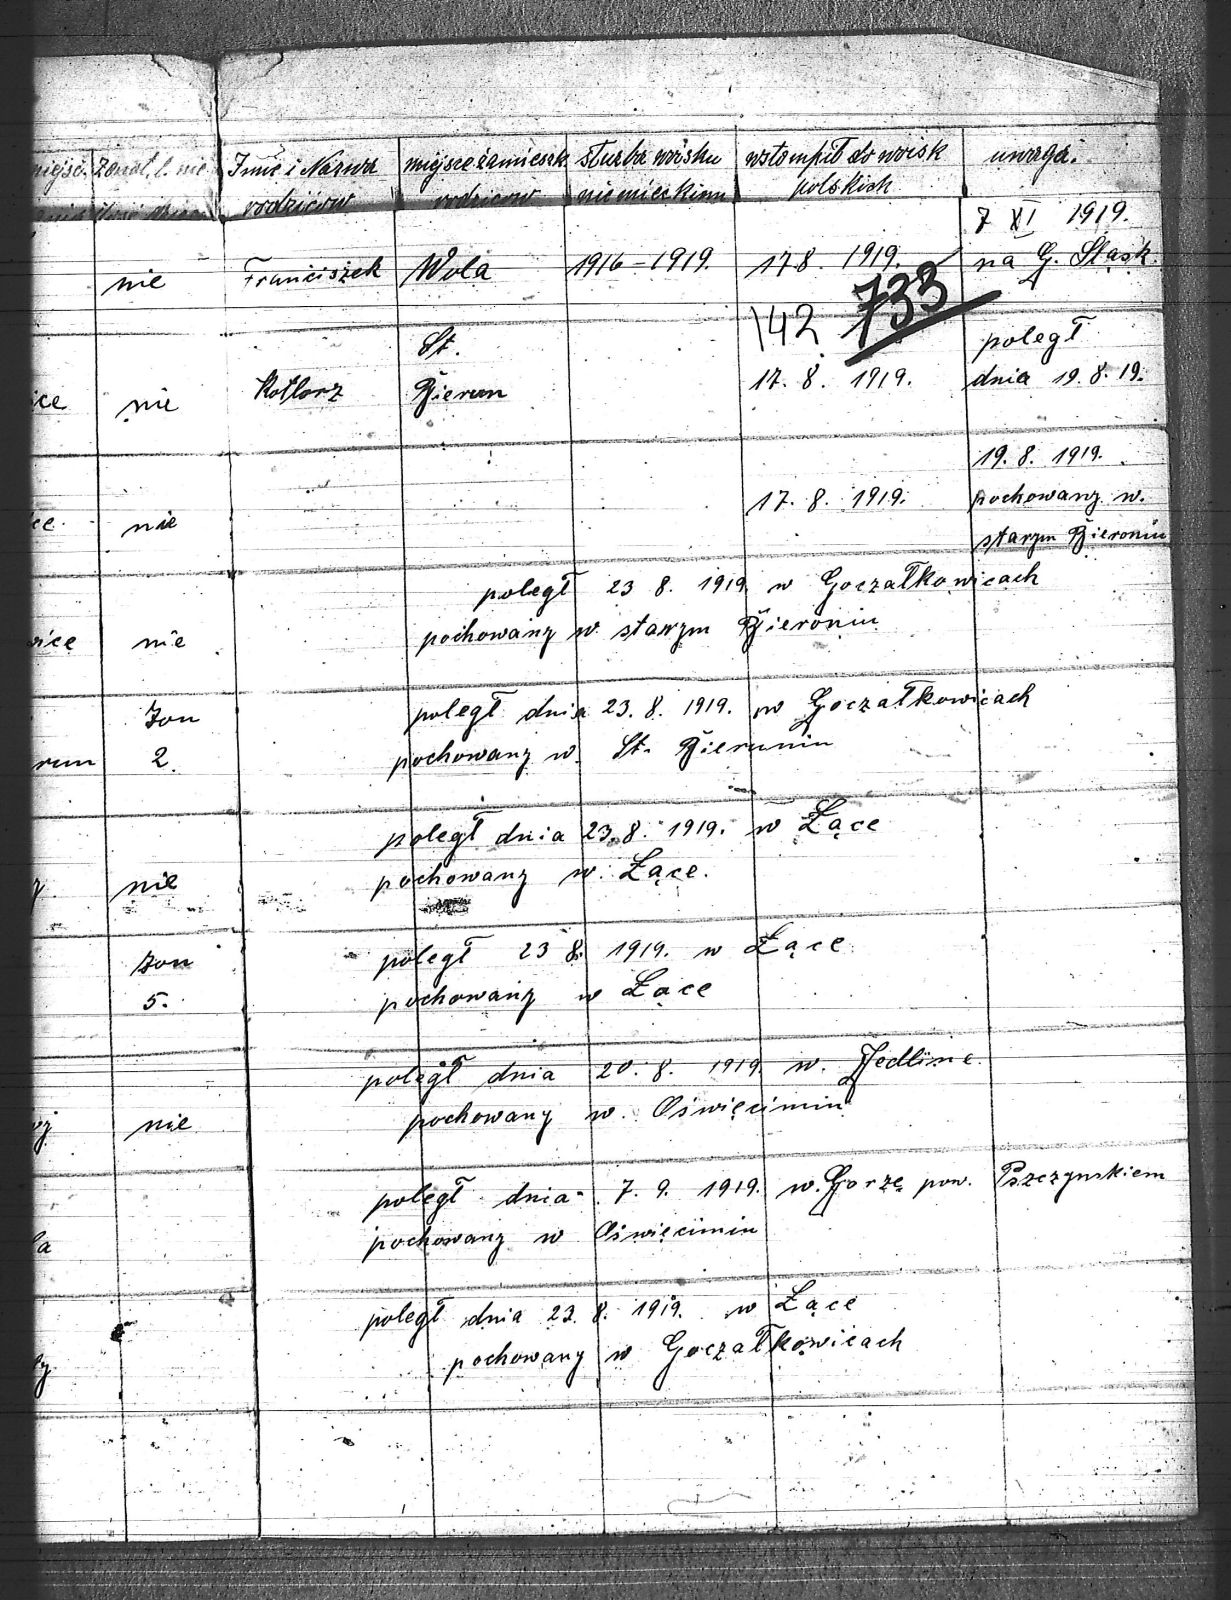 miejsc. żonat. l. nie Imie i Nazwa miejsce zamieszk słuzba woisku wstompił do woisk uwaga.
rodzicow rodzicow niemieckim polskich
7 XI 1919.
nie Franciszek Wola 1916-1919. 17 8. 1919. na G. Sląsk
142 733
St. poległ
ice nie Kotlorz Bierun 17. 8. 1919. dnia 19. 8. 19.
19. 8. 1919.
ice. nie 17. 8. 1919. pochowany w.
starym Bieroniu
poległ 23 8. 1919. w Goczałkowicach
wice nie pochowany w starym Bieroniu
Zon poległ dnia 23. 8. 1919. w Goczałkowicach
run 2. pochowany w. St. Bieruniu
poległ dnia 23. 8. 1919. w Łące
nie pochowany w. Łące.
Zon poległ 23 8. 1919. w Łące
5. pochowany w Łące
poległ dnia 20. 8. 1919. w. Jedline.
nie pochowany w. Oświęcimiu
poległ dnia 7. 9. 1919. w. Gorze pow. Pszczynskiem
la pochowany w Oświęcimiu
poległ dnia 23. 8. 1919. w Łące
ły pochowany w Goczałkowicach